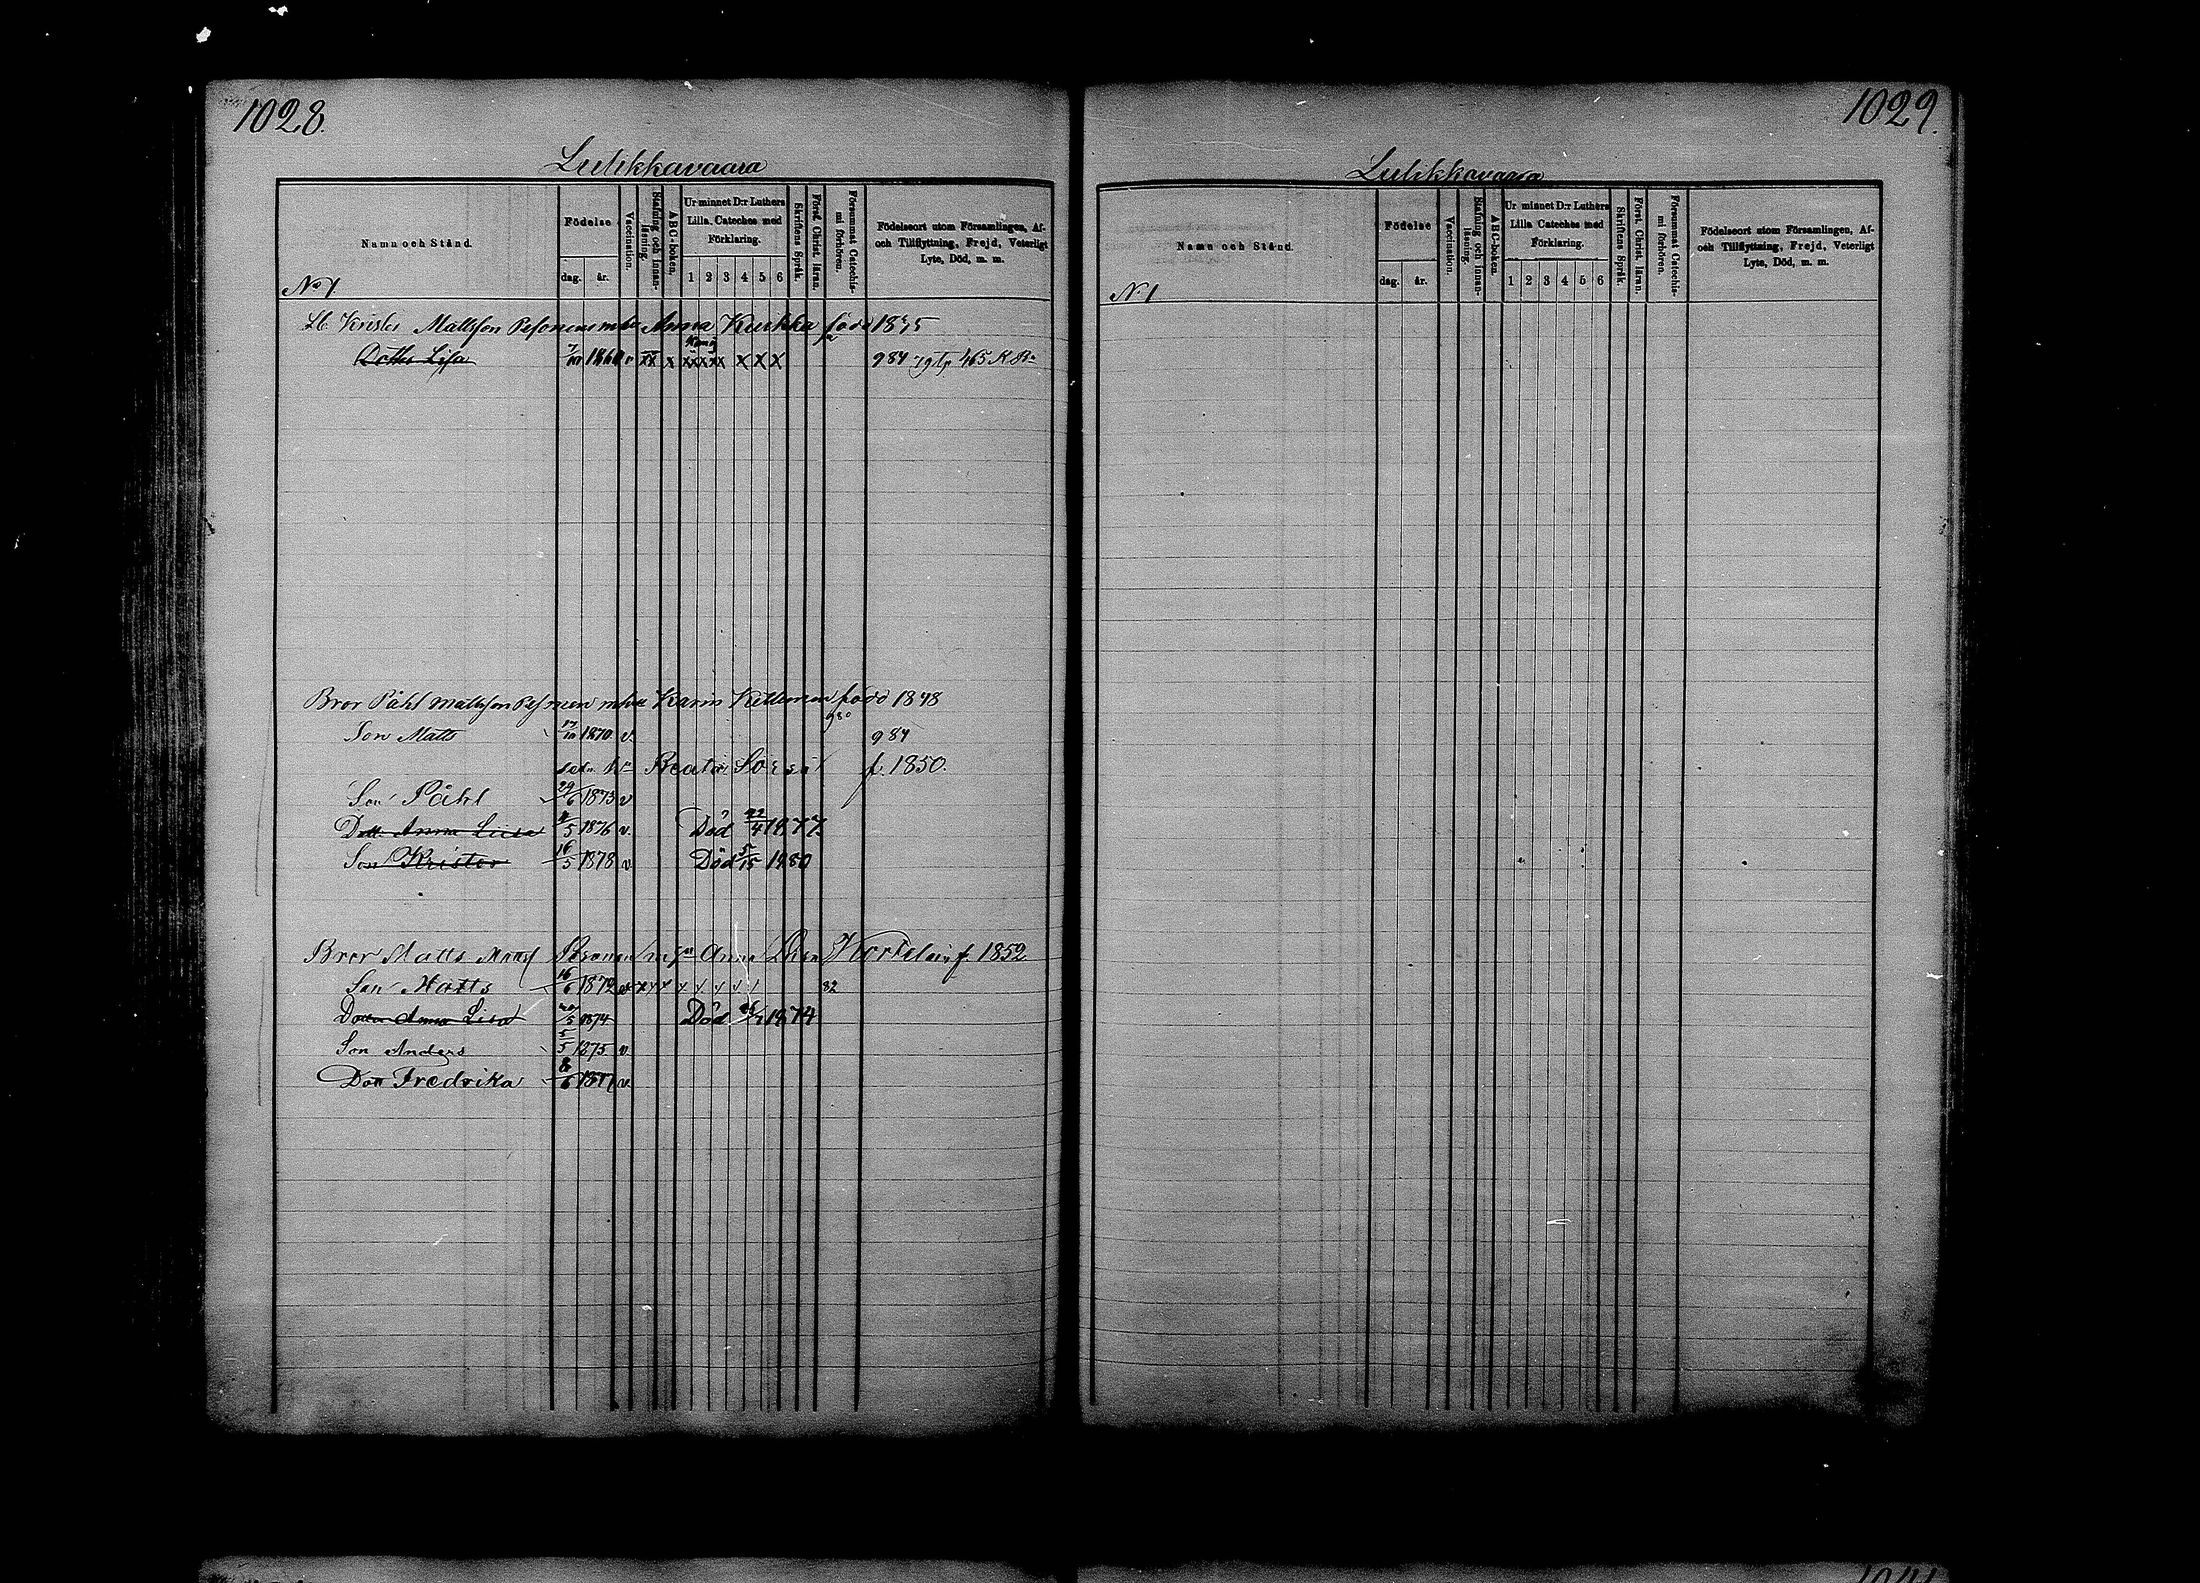 1028.
Lulikkavaara
Namn och Stånd.
Födelse
dag.
år.
Vaccination.
Stafning och innan-läsning.
ABC-boken.
Ur minnet D:r Luthers
Lilla Cateches med
Förklaring.
1 2 3 4 5 6
Skriftens Språk.
Först. Christ. läran.
Försummat Catechis-
mi förhören.
Födelseort utom Församlingen, Af-
och Tillflyttning, Frejd, Veterligt
Lyte, Död, m. m.
No 1
Lb Krister Mattsson Pesonens Anna Kuckka född 1845
Dotter Lisa 1860 v xx x xxxx x x x 984 465 K Bn
Bror Påhl Mattsson Pesonen Karin Kettunen född 1848
980
Son Matts 17/10 1870 v. 984
Beata Sorsa f. 1850.
Son Påhl 29/6 1873 v
Dott. Anna Liisa 4/5 1876 v. Död 22/4 1877
Son Krister 16/5 1878 v Död 5/15 1880
Bror Matts Matts Pesonen Anna Lisa f. 1852
Son Matts 16/6 1872 82
Dotter Anna Lisa 1874 Död 1874
Son Anders 5/5 1875 v.
Dott Fredrika 8/6 1877 v.
1029.
Lulikkavaara
Namn och Stånd.
Födelse
dag.
år.
Vaccination.
Stafning och innan-läsning.
ABC-boken.
Ur minnet D:r Luthers
Lilla Cateches med
Förklaring.
1 2 3 4 5 6
Skriftens Språk.
Först. Christ. läran.
Försummat Catechis-
mi förhören.
Födelseort utom Församlingen, Af-
och Tillflyttning, Frejd, Veterligt
Lyte, Död, m. m.
N. 1